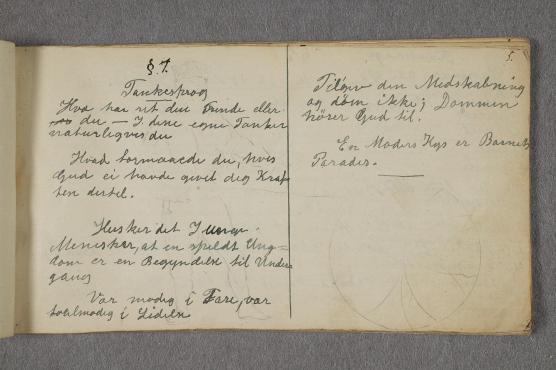 § 7.
Tankesprog
Hvo har rit din Frinde eller
du — I dine egne Tanker
naturligvis du
Hvad formaaede du, hvis
Gud ei havde givet dig Kraf-
ten dertil.
Husker det I unge
Mennesker, at en spildt Ung-
dom er en Begyndelse til Under
gang
Vær modig i Fare, vær
taalmodig i Lidelse
5.
Tilgiv din Medskabning
og døm ikke; Dommen
hører Gud til.
En Moders Kys er Barnets
Parades.